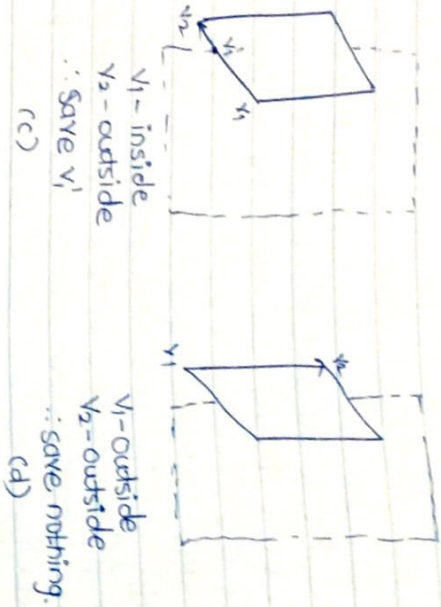 V2
V1'
V1
V1 - inside
V2 - outside
∴ Save V1'
(c)
V1
V2
V1 - outside
V2 - outside
∴ save nothing.
(d)